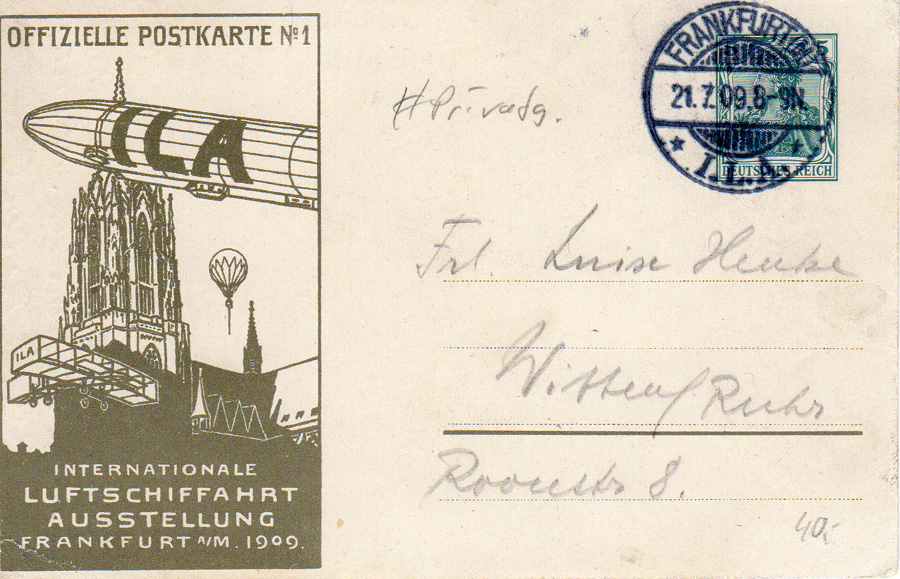 OFFIZIELLE POSTKARTE No 1
ILA
ILA
INTERNATIONALE
LUFTSCHIFFAHRT
AUSSTELLUNG
FRANKFURT A/M. 1909.
FRANKFURT
21.7.09.8-9N.
* I.L.A. *
5
DEUTSCHES REICH
Frl. Luise Henke
Witten/Ruhr
Roonstr 8.
40.-